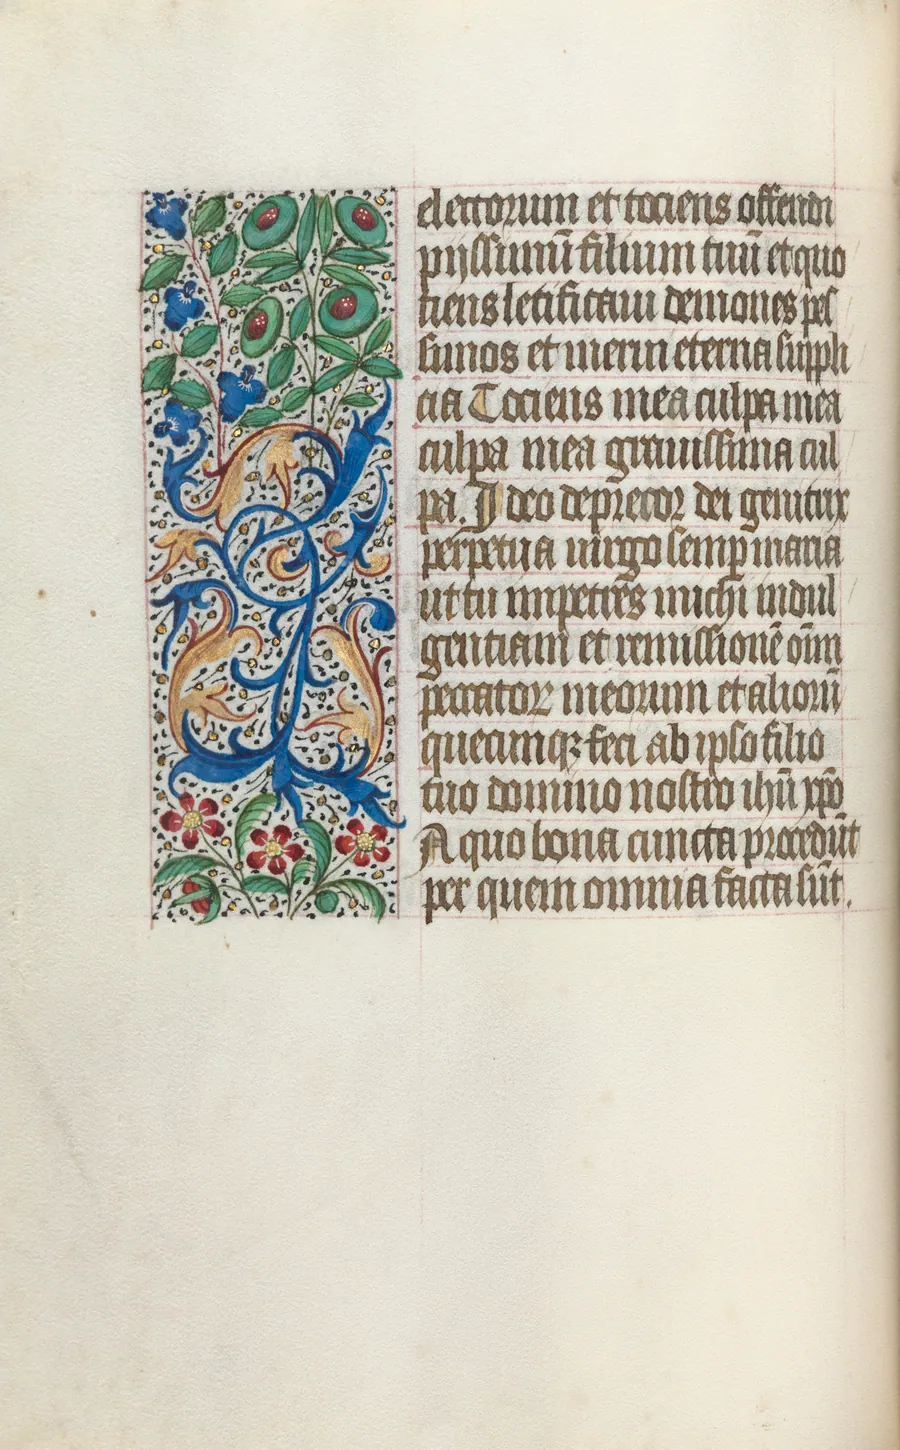 electorum et tociens offendi
pijssimū filium tuū et quo
tiens letificaui demones pes
simos et merui eterna suppli
cia Tociens mea culpa mea
culpa mea grauissima cul
pa. Ideo deprecor dei genitrix
perpetua uirgo semp maria
ut tu impetres michi indul
gentiam et remissionē oīm
peccatoꝝ meorum et alioꝝū
quecunqꝫ feci ab ipso filio
tuo domino nostro ihū xpō
A quo bona cuncta procedūt
per quem omnia facta sūt.